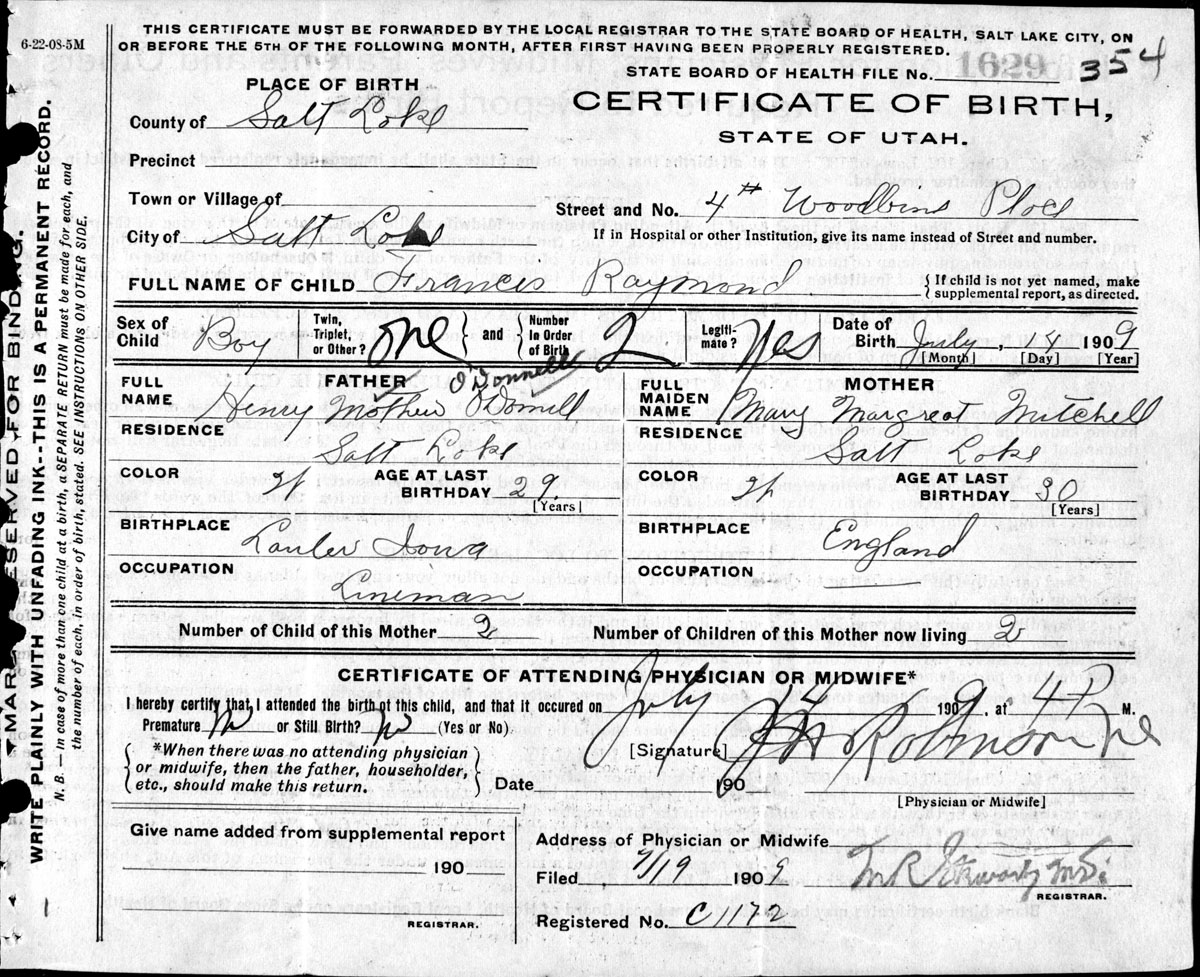 6-22-08-5M
THIS CERTIFICATE MUST BE FORWARDED BY THE LOCAL REGISTRAR TO THE STATE BOARD OF HEALTH, SALT LAKE CITY, ON
OR BEFORE THE 5TH OF THE FOLLOWING MONTH, AFTER FIRST HAVING BEEN PROPERLY REGISTERED.
STATE BOARD OF HEALTH FILE No. 1629 354
CERTIFICATE OF BIRTH,
STATE OF UTAH.
PLACE OF BIRTH
County of Salt Lake
Precinct
Town or Village of
City of Salt Lake
Street and No. 4th Woodbine Place
If in Hospital or other Institution, give its name instead of Street and number.
FULL NAME OF CHILD Francis Raymond
{If child is not yet named, make
supplemental report, as directed.
Sex of Child Boy
Twin, Triplet, or Other? one } and { Number In Order of Birth 2
Legitimate? Yes
Date of Birth July, 4 1909
[Month] [Day] [Year]
FATHER
O'Donnell
FULL NAME Henry Mother O'Donnell
RESIDENCE Salt Lake
COLOR
AGE AT LAST BIRTHDAY 29
[Years]
BIRTHPLACE Iowa
OCCUPATION Lineman
MOTHER
FULL MAIDEN NAME Mary Margreat Mitchell
RESIDENCE Salt Lake
COLOR
AGE AT LAST BIRTHDAY 30
[Years]
BIRTHPLACE England
OCCUPATION
Number of Child of this Mother 2 Number of Children of this Mother now living 2
CERTIFICATE OF ATTENDING PHYSICIAN OR MIDWIFE*
I hereby certify that I attended the birth of this child, and that it occured on July 4 1909, at 4 P M.
Premature No or Still Birth? No (Yes or No)
{*When there was no attending physician
or midwife, then the father, householder,
etc., should make this return.}
[Signature] Robinson
Date 190
[Physician or Midwife]
Give name added from supplemental report
190
REGISTRAR.
Address of Physician or Midwife
Filed, 7/19 1909
REGISTRAR.
Registered No. C1172
MARGIN RESERVED FOR BINDING.
WRITE PLAINLY WITH UNFADING INK--THIS IS A PERMANENT RECORD.
N. B. — In case of more than one child at a birth, a SEPARATE RETURN must be made for each, and
the number of each, in order of birth, stated. SEE INSTRUCTIONS ON OTHER SIDE.